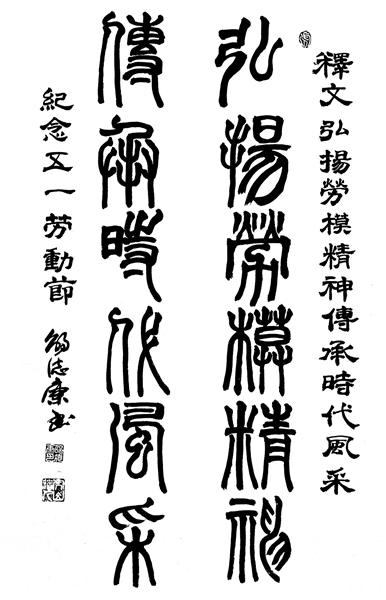 釋文弘揚勞模精神傳承時代風采
弘揚勞模精神
傳承時代風采
紀念五一劳動節
志康书